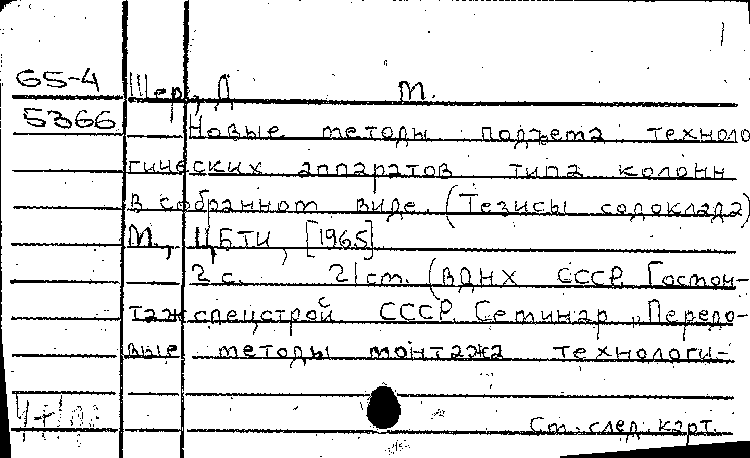 65-4 Шер, Д М.
5366 Новые методы подъема техноло
гических аппаратов типа колонн
в собранном виде. (Тезисы содоклада)
М., ЦБТИ, [1965]
2 с. 21 см. (ВДНХ СССР. Госмон-
тажспецстрой СССР. Семинар „Передо-
вые методы монтажа технологи-
См. след. карт.